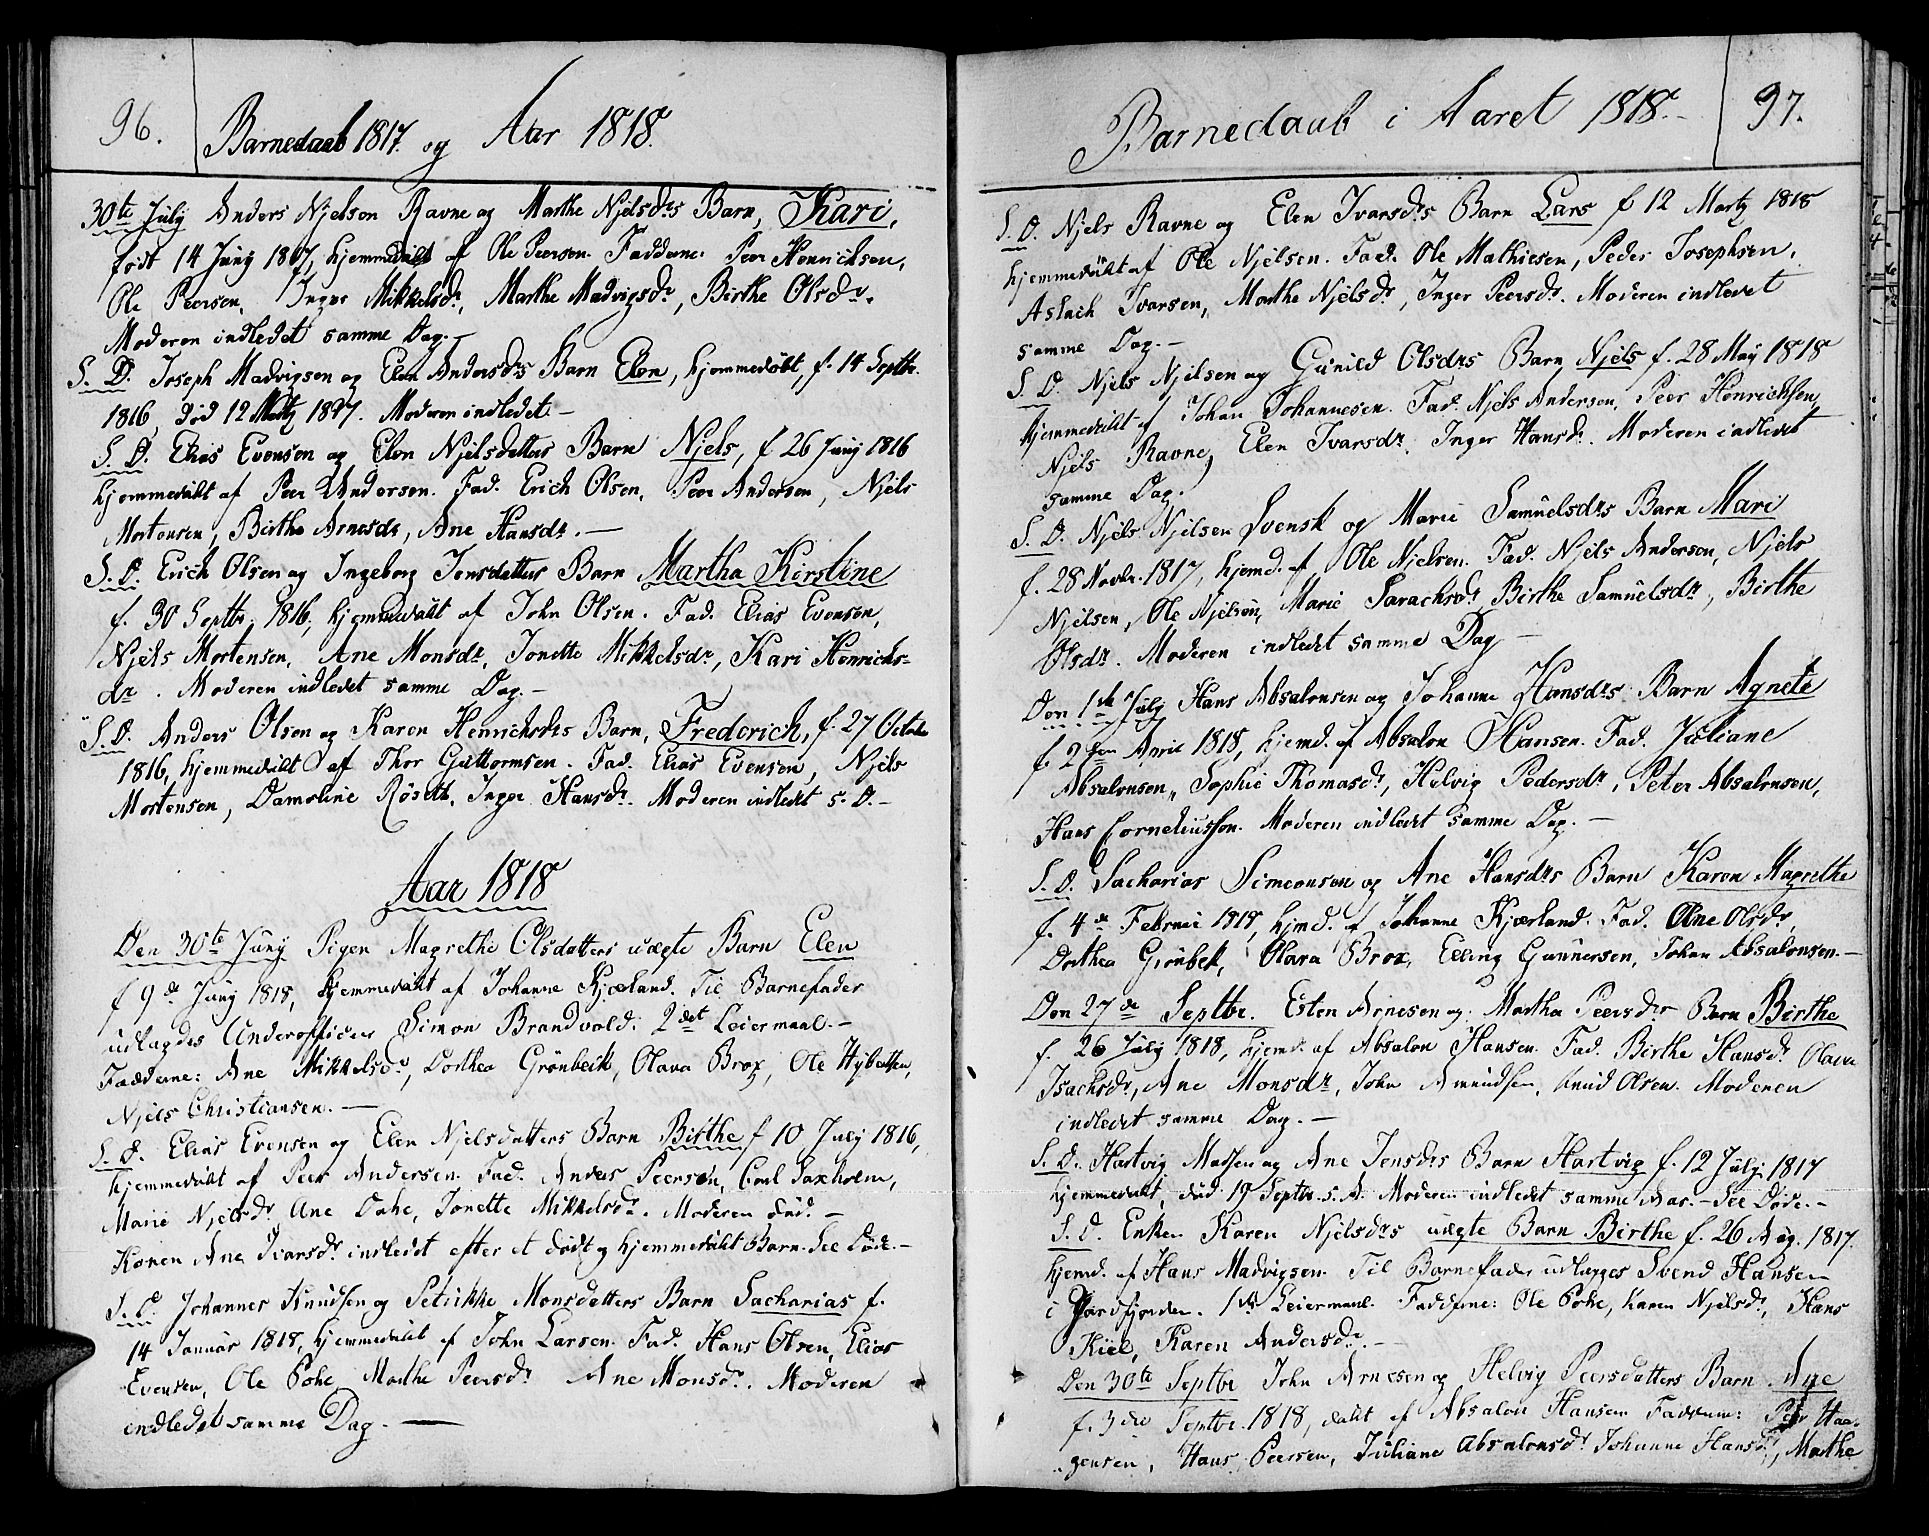 96.
Barnedaab 1817. og Aar 1818.
30te July Anders Njelsen Ravne og Marthe Njelsdrs Barn, Kari,
født 14 Juny 1817, hjemmedøbt af Ole Peersen. Fadderne: Peer Henrichsen,
Ole Peersen, Inger Mikkelsdr, Marthe Madvigsdr, Birthe Olsdr.
Moderen indledet samme Dag.-
S. D. Joseph Madvigsen og Elen Andersdrs Barn Elen, hjemmedøbt, f. 14 Septbr.
1816, død 12 Martz 1817. Moderen indledet-
S. D. Elias Evensen og Elen Njelsdatters Barn Njels, f 26 Juny 1816
hjemmedøbt af Peer Andersen. Fad. Erich Olsen, Peer Andersen, Njels
Mortensen, Birthe Arnesdr, Ane Hansdr.-
S. D. Erich Olsen og Ingeborg Jonsdatters Barn Martha Kirstine
f. 30 Septbr. 1816, hjemmedøbt af John Olsen. Fad. Elias Evensen,
Njels Mortensen, Ane Monsdr, Jonette Mikkelsdr, Kari Henrichs-
dr. Moderen indledet samme Dag.-
S. D. Anders Olsen og Karen Henrichsdrs Barn, Frederich, f. 27 Octobr
1816, hjemmedøbt af Thor Guttormsen. Fad. Elias Evensen, Njels
Mortensen, Damoline Röseth, Inger Hansdr. Moderen indledet S. D.-
Aar 1818
Den 30te Juny Pigen Magrethe Olsdatters uægte Barn Elen
f 9de Juny 1818, hjemmedøbt af Johanne Kjæland. Til Barnefader
udlagdes Underofficer Simon Brandvold. 2det Leiermaal.-
Fadderne: Ane Mikkelsdr, Dorthea Grönbeck, Olava Brox, Ole Hybertsen,
Njels Christiansen.-
S. D. Elias Evensen og Elen Njelsdatters Barn Birthe f 10 July 1816,
hjemmedøbt af Peer Andersen. Fad. Anders Peersen, Carl Saxholm,
Marie Njelsdr, Ane Dahe, Jonette Mikkelsdr. Moderen død.-
Konen Ane Ivarsdr indledet efter et dødt og hjemmedøbt Barn. See Døde.-
S. D. Johannes Knudsen og Petrikke Monsdatters Barn Sacharias f.
14 Januar 1818, hjemmedøbt af John Larsen. Fad. Hans Olsen, Elias
Evensen, Ole Pohe, Marthe Peersdr Ane Monsdr. Moderen
indledet samme Dag.-
Barnedaab i Aaret 1818.-
97.
S. D. Njels Ravne og Elen Ivarsdrs Barn Lars f 12 Martz 1818
hjemmedøbt af Ole Njelsen. Fad. Ole Mathiesen, Peder Josephsen,
Aslach Ivarsen, Marthe Njelsdr, Inger Peersdr. Moderen indledet
samme Dag.-
S. D. Njels Njelsen og Gunild Olsdrs Barn Njels f. 28 May 1818
hjemmedøbt af Johan Johannesen. Fad. Njels Andersen, Peer Henrichsen,
Njels Ravne, Elen Ivarsdr. Inger Hansdr. Moderen indledet
samme Dag.
S. D. Njels Njelsen Svensk og Marie Samuelsdrs Barn Mari
f. 28 Novbr. 1817, hjemd. af Ole Njelsen. Fad. Njels Andersen, Njels
Njelsen, Ole Njelsen, Marie Sarachsdr Birthe Samuelsdr, Birthe
Olsdr. Moderen indledet samme Dag-
Den 1ste July Hans Absalonsen og Johanne Hansdrs Barn Agnete
f. 2den April 1818, hjemd. af Absalon Hansen. Fad. Juliane
Absalonsen, Sophie Thomasdr, Helvig Pedersdr, Peter Absalonsen,
Hans Corneliussen. Moderen indledet samme Dag.-
S. D. Sacharias Simeonsen og Ane Hansdrs Barn Karen Magrethe
f. 4de Februar 1818, hjemd. af Johanne Kjærland. Fad. Oline Olsdr,
Dorthea Grönbek, Olava Brox, Elling Gunnersen, Johan Absalonsen.-
Den 27de Septbr. Esten Arnesen og Martha Peersdrs Barn Birthe
f. 26 July 1818, hjemd. af Absalon Hansen. Fad. Birthe Hansdr Olava
Isachsdr, Ane Monsdr, John Amundsen, Knud Olsen. Moderen
indledet samme Dag.-
S. D. Hartvig Madsen og Ane Jensdrs Barn Hartvig f. 12 July 1817
hjemmedøbt, død 19 Septbr. s. A. Moderen indledet samme Aar.- See Døde.-
S. D. Enken Karen Njelsdrs uægte Barn Birthe f. 26 Aug. 1817.
hjemd. af Hans Madvigsen. Til Barnefader udlagges Svend Hansen
i Gardfjorden. 1ste Leiermaal. Fadderne: Ole Pohe, Karen Njelsdr, Hans
Kiil, Karen Andersdr.-
Den 30te Septbr John Arnesen og Helvig Peersdatters Barn Ane
f. 3die Septbr. 1818, døbt af Absalon Hansen Fadderne: Peer Haa-
gensen, Hans Peersen, Juliane Absalonsdr Johanne Hansdr, Marthe